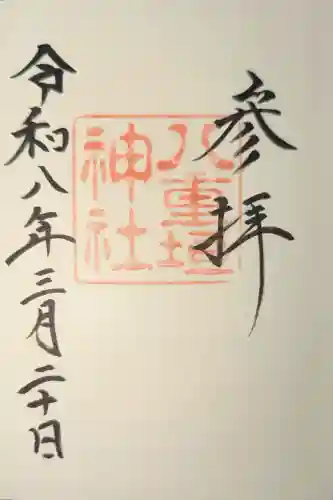 参拝
八重垣
神社
令和八年三月二十日